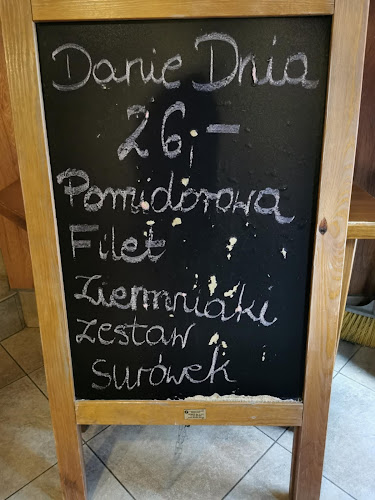 Danie Dnia
26,-
Pomidorowa
Filet
Ziemniaki
zestaw
surówek